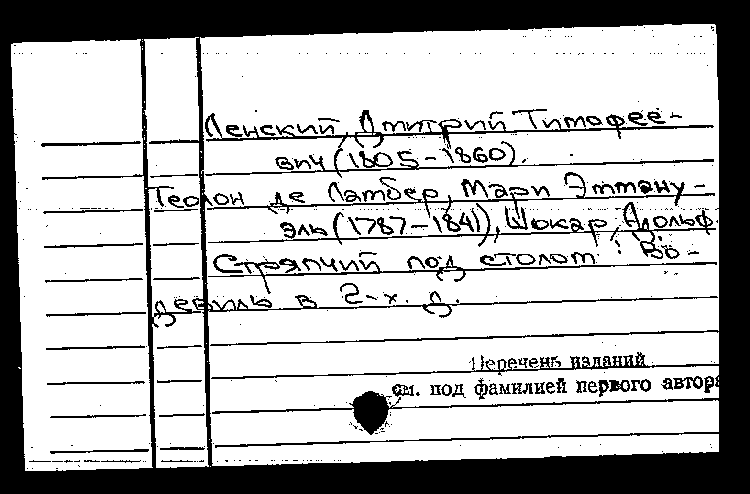 Ленский, Дмитрий Тимофее-
вич (1805-1860).
Теолон де Ламбер, Мари Эмману-
эль (1787-1841), Шокар, Адольф.
Стряпчий под столом : Во-
девиль в 2-х. д.
Перечень изданий
см. под фамилией первого автора